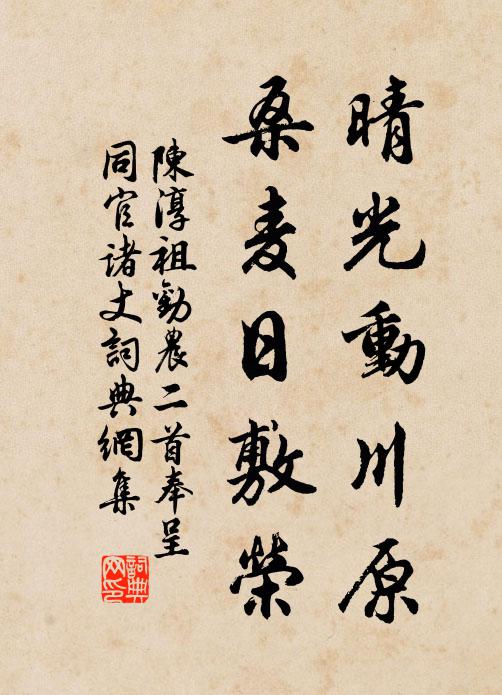 晴光動川原
桑麦日敷榮
陳淳祖勸農二首奉呈
同官诸丈詞典網集
詞典网印